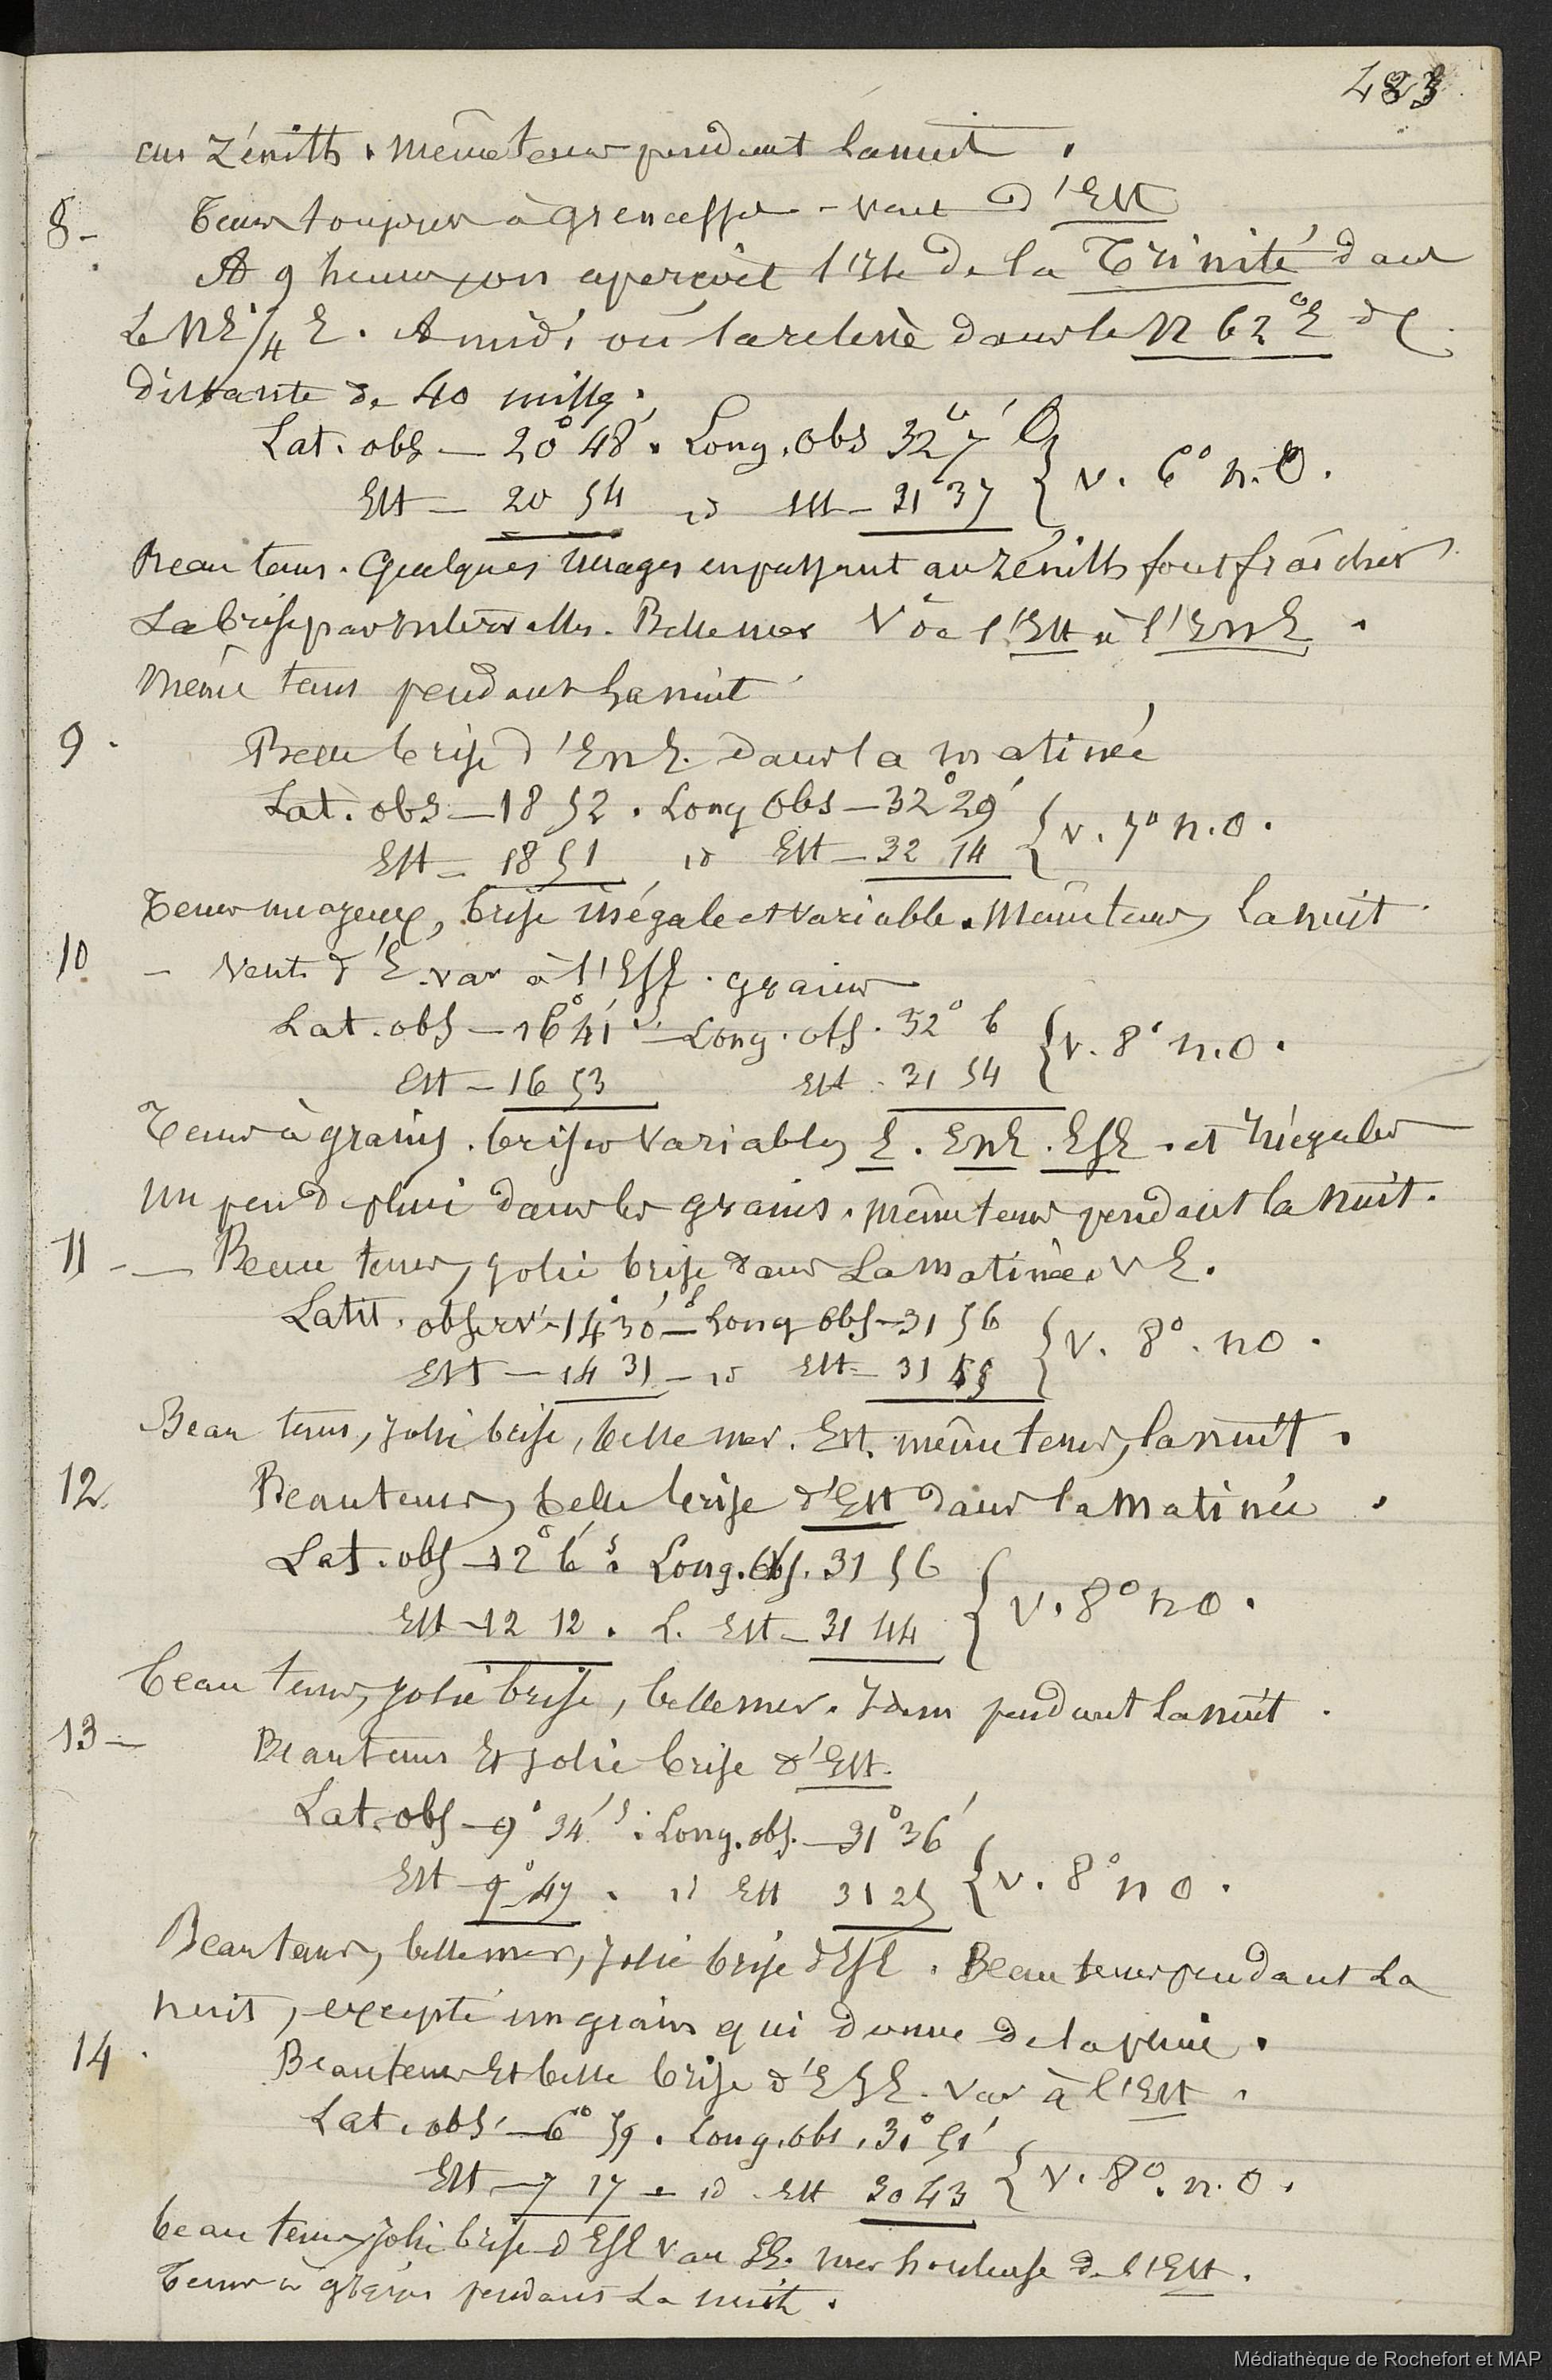 483
au zénith. même tems pendant la nuit.
8 - Tems toujours à grenasses - vent d'Est
A 9 heures, on aperçoit l'Isle de la Trinité dans
le NE 1/4 E. A midi on la relevè dans le N 62° E de
distante de 40 milles.
Lat. obs - 20° 48'. Long. obs 32° 7' O
Est - 20 54 id Est - 31° 37 } v. 6° n.O.
Beau tems. Quelques nuages en passant au zénith font fraîchir
La brise par Intervalles. Belle mer V de l'Est à l'ENE.
même tems pendant la nuit
9. Belle brise d'ENE. dans la matinée
Lat. obs - 18 52. Long Obs - 32° 29'
Est - 18 51 id Est - 32 14 } v. 7° n.o.
Tems nuageux, brise inégale et variable. même tems, la nuit.
10 - Vent d'E. var à l'ESE. grains
Lat. obs - 16° 41' S. - Long. obs. 32° 6
Est - 16 53 Est. 31 54 } v. 8° n.o.
Tems à grains. brises variables E. ENE. ESE. et Inégales
un peu de pluie dans les grains. même tems pendant la nuit.
11 - - Beau tems, jolie brise dans la matinée. V E.
Latit. observ. - 14° 30' S - Long Obs - 31 56
Est - 14 31 - id Est - 31 55 } v. 8°. no.
Beau tems, jolie brise, belle mer. Est. même tems, la nuit.
12. Beau tems, belle brise d'Est dans la matinée.
Lat. obs - 12° 6' S. Long. Obs. 31 56
Est - 12 12. L. Est - 31 44 } v. 8° no.
beau tems, jolie brise, belle mer. Idem pendant la nuit.
13 - Beau tems Et jolie brise d'Est.
Lat. obs - 9° 34' S. Long. obs. - 31° 36'
Est - 9° 47. id Est 31 25 } v. 8° no.
Beau tems, belle mer, jolie brise d'ESE. Beau tems pendant la
nuit, excepté un grain qui donne de la pluie.
14. Beau tems Et belle brise d'ESE. var à l'Est.
Lat. obs. - 6° 59. Long. obs. 30° 51'
Est - 7 17 - id. Est 30 43 } v. 8°. n.o.
beau tems, jolie brise d'ESE v au SE. mer houleuse de l'Est.
Tems à grains pendant la nuit.
Médiathèque de Rochefort et MAP